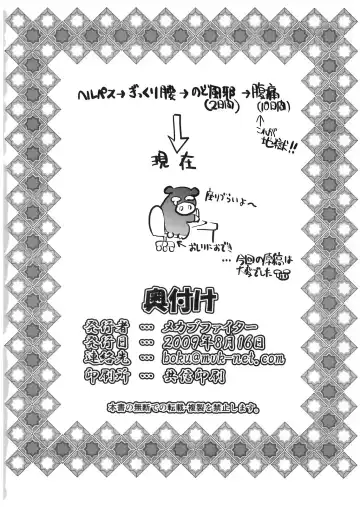 ヘルペス→ぎっくり腰→のど風邪→腹痛
(2日間) (10日間)
これが
地獄!!
現在
座りづらいよ~
おしりにおでき
…今回の原稿は
大変でした
奥付け
発行者 … メカブファイター
発行日 … 2009年8月16日
連絡先 … boku@mvk-net.com
印刷所 … 共信印刷
本書の無断での転載・複製を禁止します。